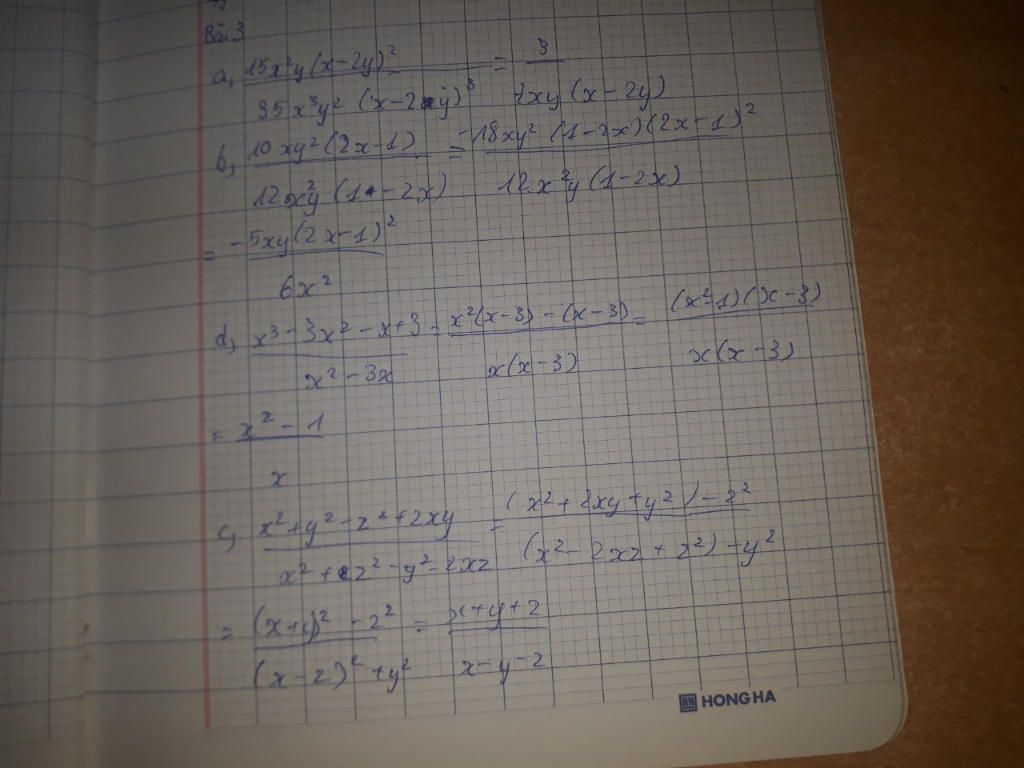 Bài 3
a, 15x²y(x-2y)² / 35x³y² (x-2y)³ = 3 / 7xy(x-2y)
b, 10xy²(2x-1) / 12xy(1-2x) = -18xy²(1-2x)(2x-1)² / 12x³y(1-2x)
= -5xy(2x-1)² / 6x²
d, x³-3x²-x+3 / x²-3x = x²(x-3)-(x-3) / x(x-3) = (x²-1)(x-3) / x(x-3)
= x²-1 / x
c, x²+y²-z²+2xy / x²+z²-y²-2xz = (x²+2xy+y²)-z² / (x²-2xz+z²)-y²
= (x+y)²-z² / (x-z)²+y² = x+y+z / x-y-z
HONG HA